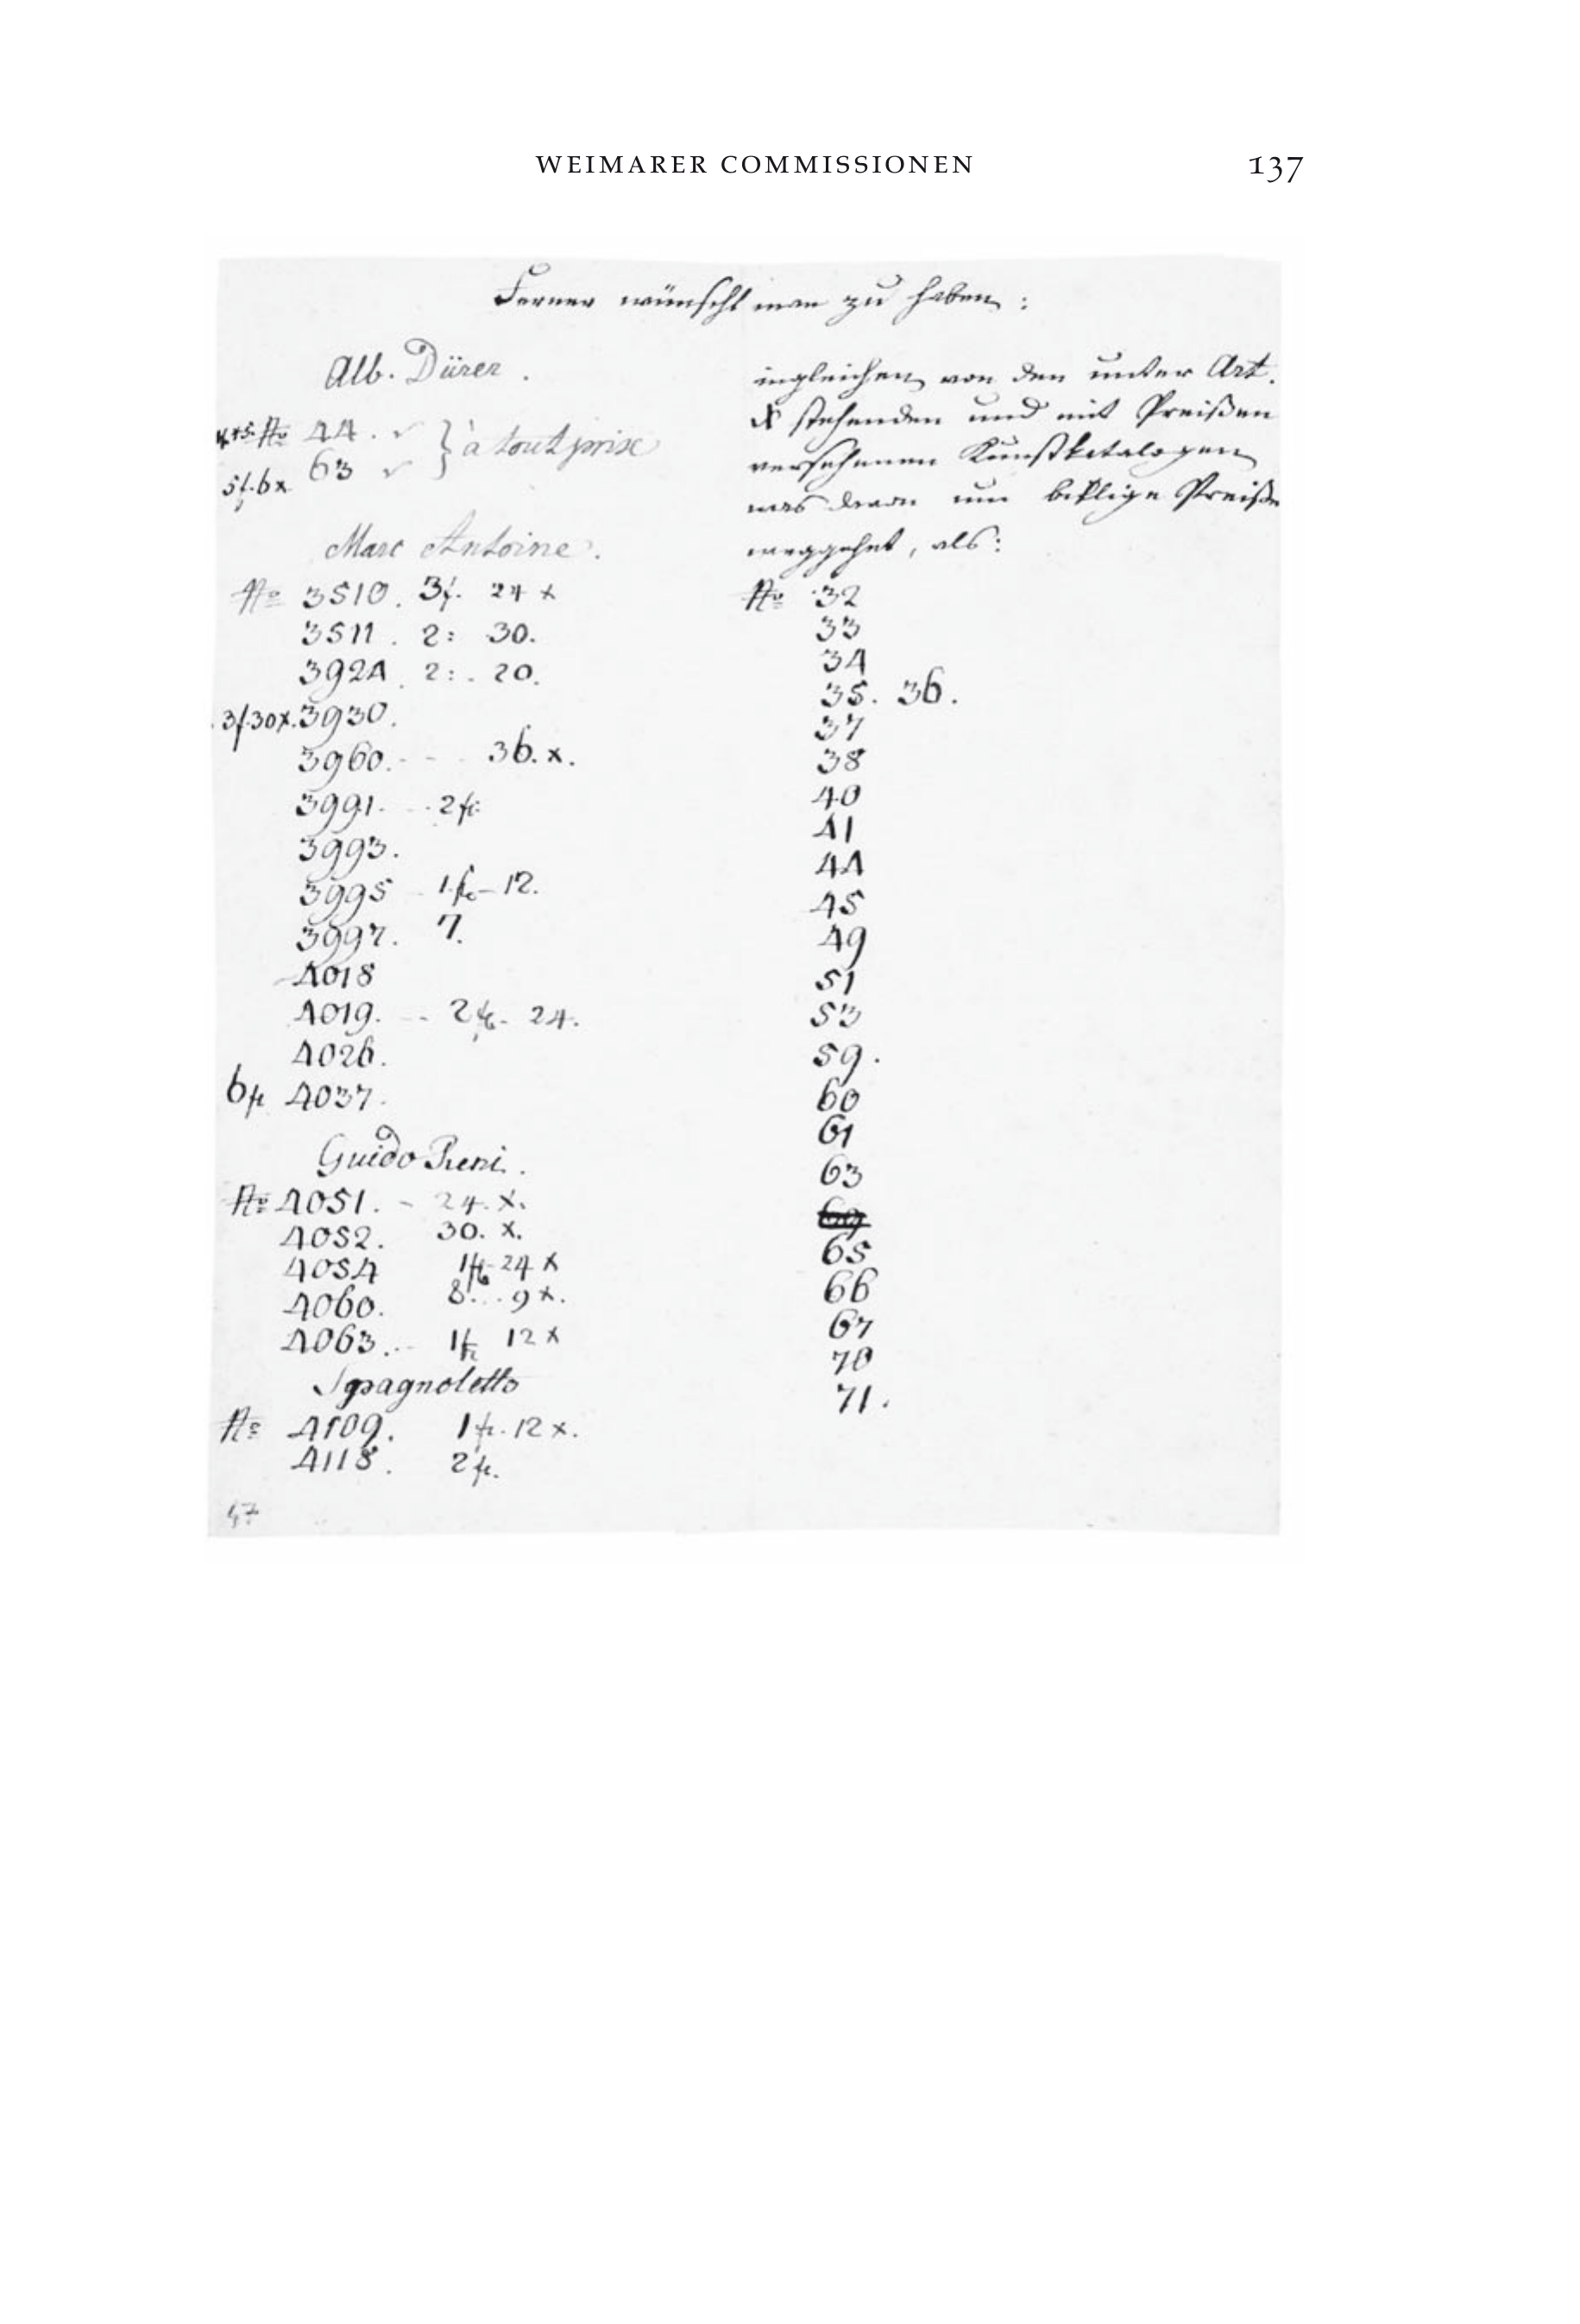 WEIMARER COMMISSIONEN 137
Ferner wünscht man zu haben:
Alb. Dürer.
No 44. ✓ } à tout prix
5f. 6x 63 ✓
Marc Antoine.
No 3510. 3f. 24 x
3511. 2: 30.
3924. 2: 20.
3f 30x. 3930.
3960. - - 36. x.
3991. - 2 fl:
3993.
3995 - 1 fl - 12.
3997. 7.
4018
4019. - - 2 fl - 24.
4026.
6 fl 4037.
Guido Reni.
No 4051. - 24. x.
4052. 30. x.
4054 1 fl 24 x
4060. 8. . . 9 x.
4063. - - 1 fl 12 x
Spagnoletto
No 4109. 1 fl. 12 x.
4118. 2 fl.
47
ingleichen von den unter Art.
X stehenden und mit Preißen
versehenen Kunstkatalogen
was davon um billige Preiße
weggehet, als:
No 32
33
34
35. 36.
37
38
40
41
44
45
49
51
53
59.
60
61
63
65
66
67
70
71.